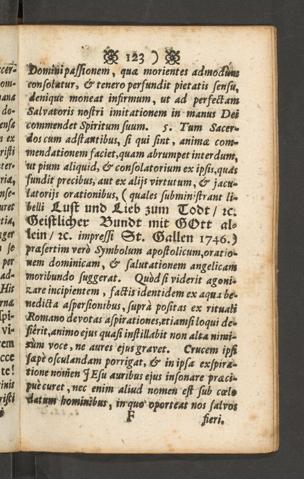 123 )
Domini passionem, quæ morientes admodum
consolatur, & tenero perfundit pietatis sensu,
denique moneat infirmum, ut ad perfectam
Salvatoris nostri imitationem in manus Dei
commendet Spiritum suum. 5. Tum Sacer-
dos cum adstantibus, si qui sint, animæ com-
mendationem faciet, quam abrumpet interdum,
ut pium aliquid, & consolatorium ex ipsis, quas
fundit precibus, aut ex alijs virtutum, & jacu-
latorijs orationibus, (quales subministrant li-
belli Lust und Lieb zum Todt / ꝛc.
Geistlicher Bundt mit GOtt al-
lein / ꝛc. impressi St. Gallen 1746.)
præsertim verò Symbolum apostolicum, oratio-
nem dominicam, & salutationem angelicam
moribundo suggerat. Quòd si viderit agoni-
zare incipientem, factis identidem ex aqua be-
nedicta aspersionibus, suprà positas ex rituali
Romano devotas aspirationes, etiamsi loqui de-
sierit, animo ejus quasi instillabit non alta nimi-
ùm voce, ne aures ejus gravet. Crucem ipsi
sæpè osculandam porrigat, & in ipsa expira-
tione nomen JEsu auribus ejus insonare præci-
puè curet, nec enim aliud nomen est sub cœlo
datum hominibus, in quo oporteat nos salvos
F fieri.